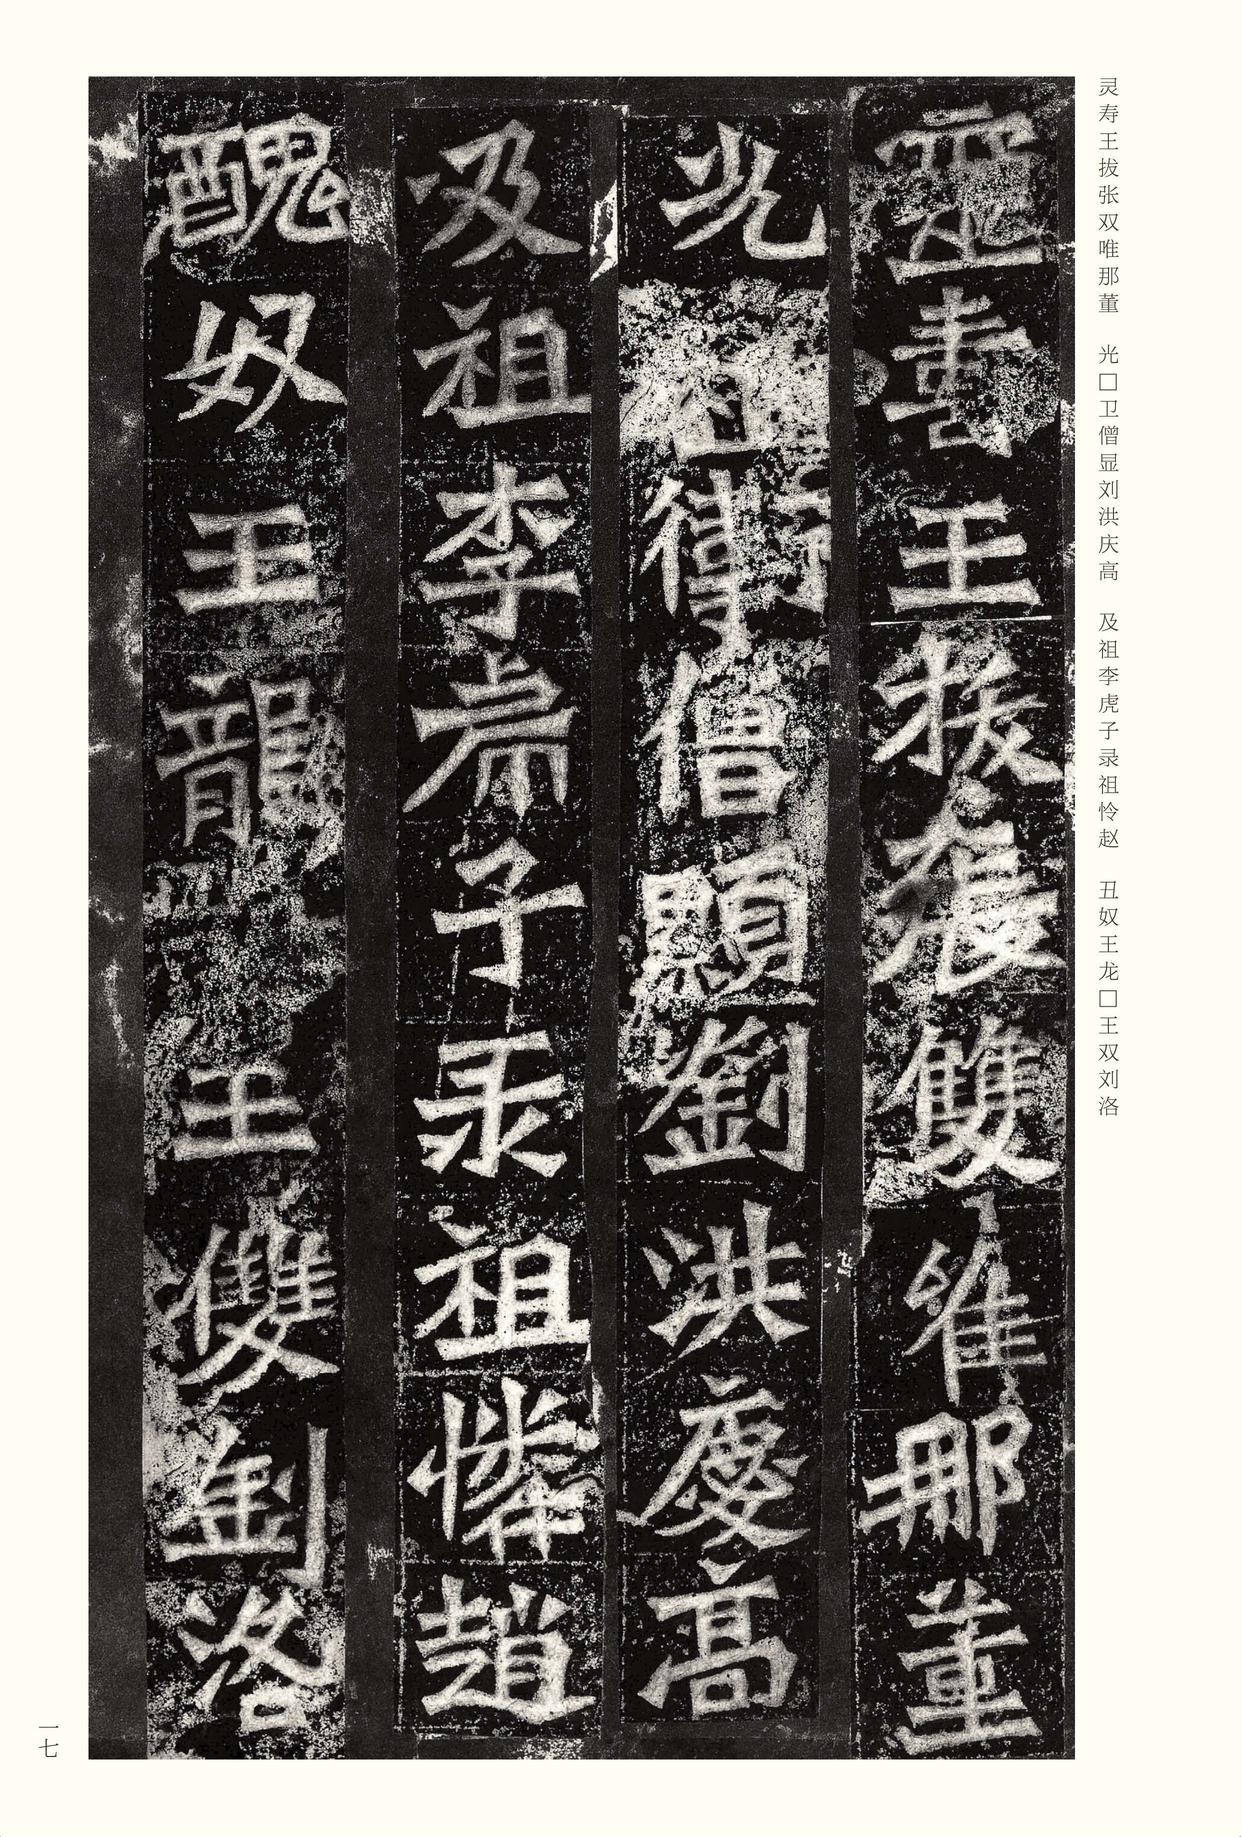 灵寿王拔张双唯那董　光□卫僧显刘洪庆高　及祖李虎子录祖怜赵　丑奴王龙□王双刘洛
靈壽王拔張雙唯那董
光祖衛僧顯劉洪慶高
及祖李虎子录祖憐趙
醜奴王龍王雙劉洛
一七